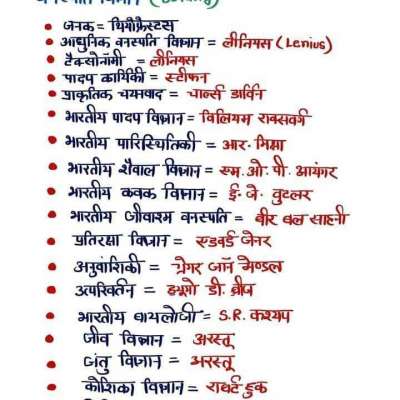 वनस्पति विज्ञान (Botany)
जनक = थियोफ्रेस्टस
आधुनिक वनस्पति विज्ञान = लीनियस (Lenius)
टैक्सोनॉमी = लीनियस
पादप कार्यिकी = स्टीफन
प्राकृतिक चयनवाद = चार्ल्स डार्विन
भारतीय पादप विज्ञान = विलियम राक्सवर्ग
भारतीय पारिस्थितिकी = आर. मिश्रा
भारतीय शैवाल विज्ञान = एम. ओ. पी. आयंगर
भारतीय कवक विज्ञान = ई. जे. बुटलर
भारतीय जीवाश्म वनस्पति = बीर बल साहनी
प्रतिरक्षा विज्ञान = एडवर्ड जेनर
अनुवांशिकी = ग्रेगर जॉन मेण्डल
उत्परिवर्तन = ह्यूगो डी. ब्रीज
भारतीय बायलोजी = S.R. कश्यप
जीव विज्ञान = अरस्तू
जंतु विज्ञान = अरस्तू
कोशिका विज्ञान = राबर्ट हुक